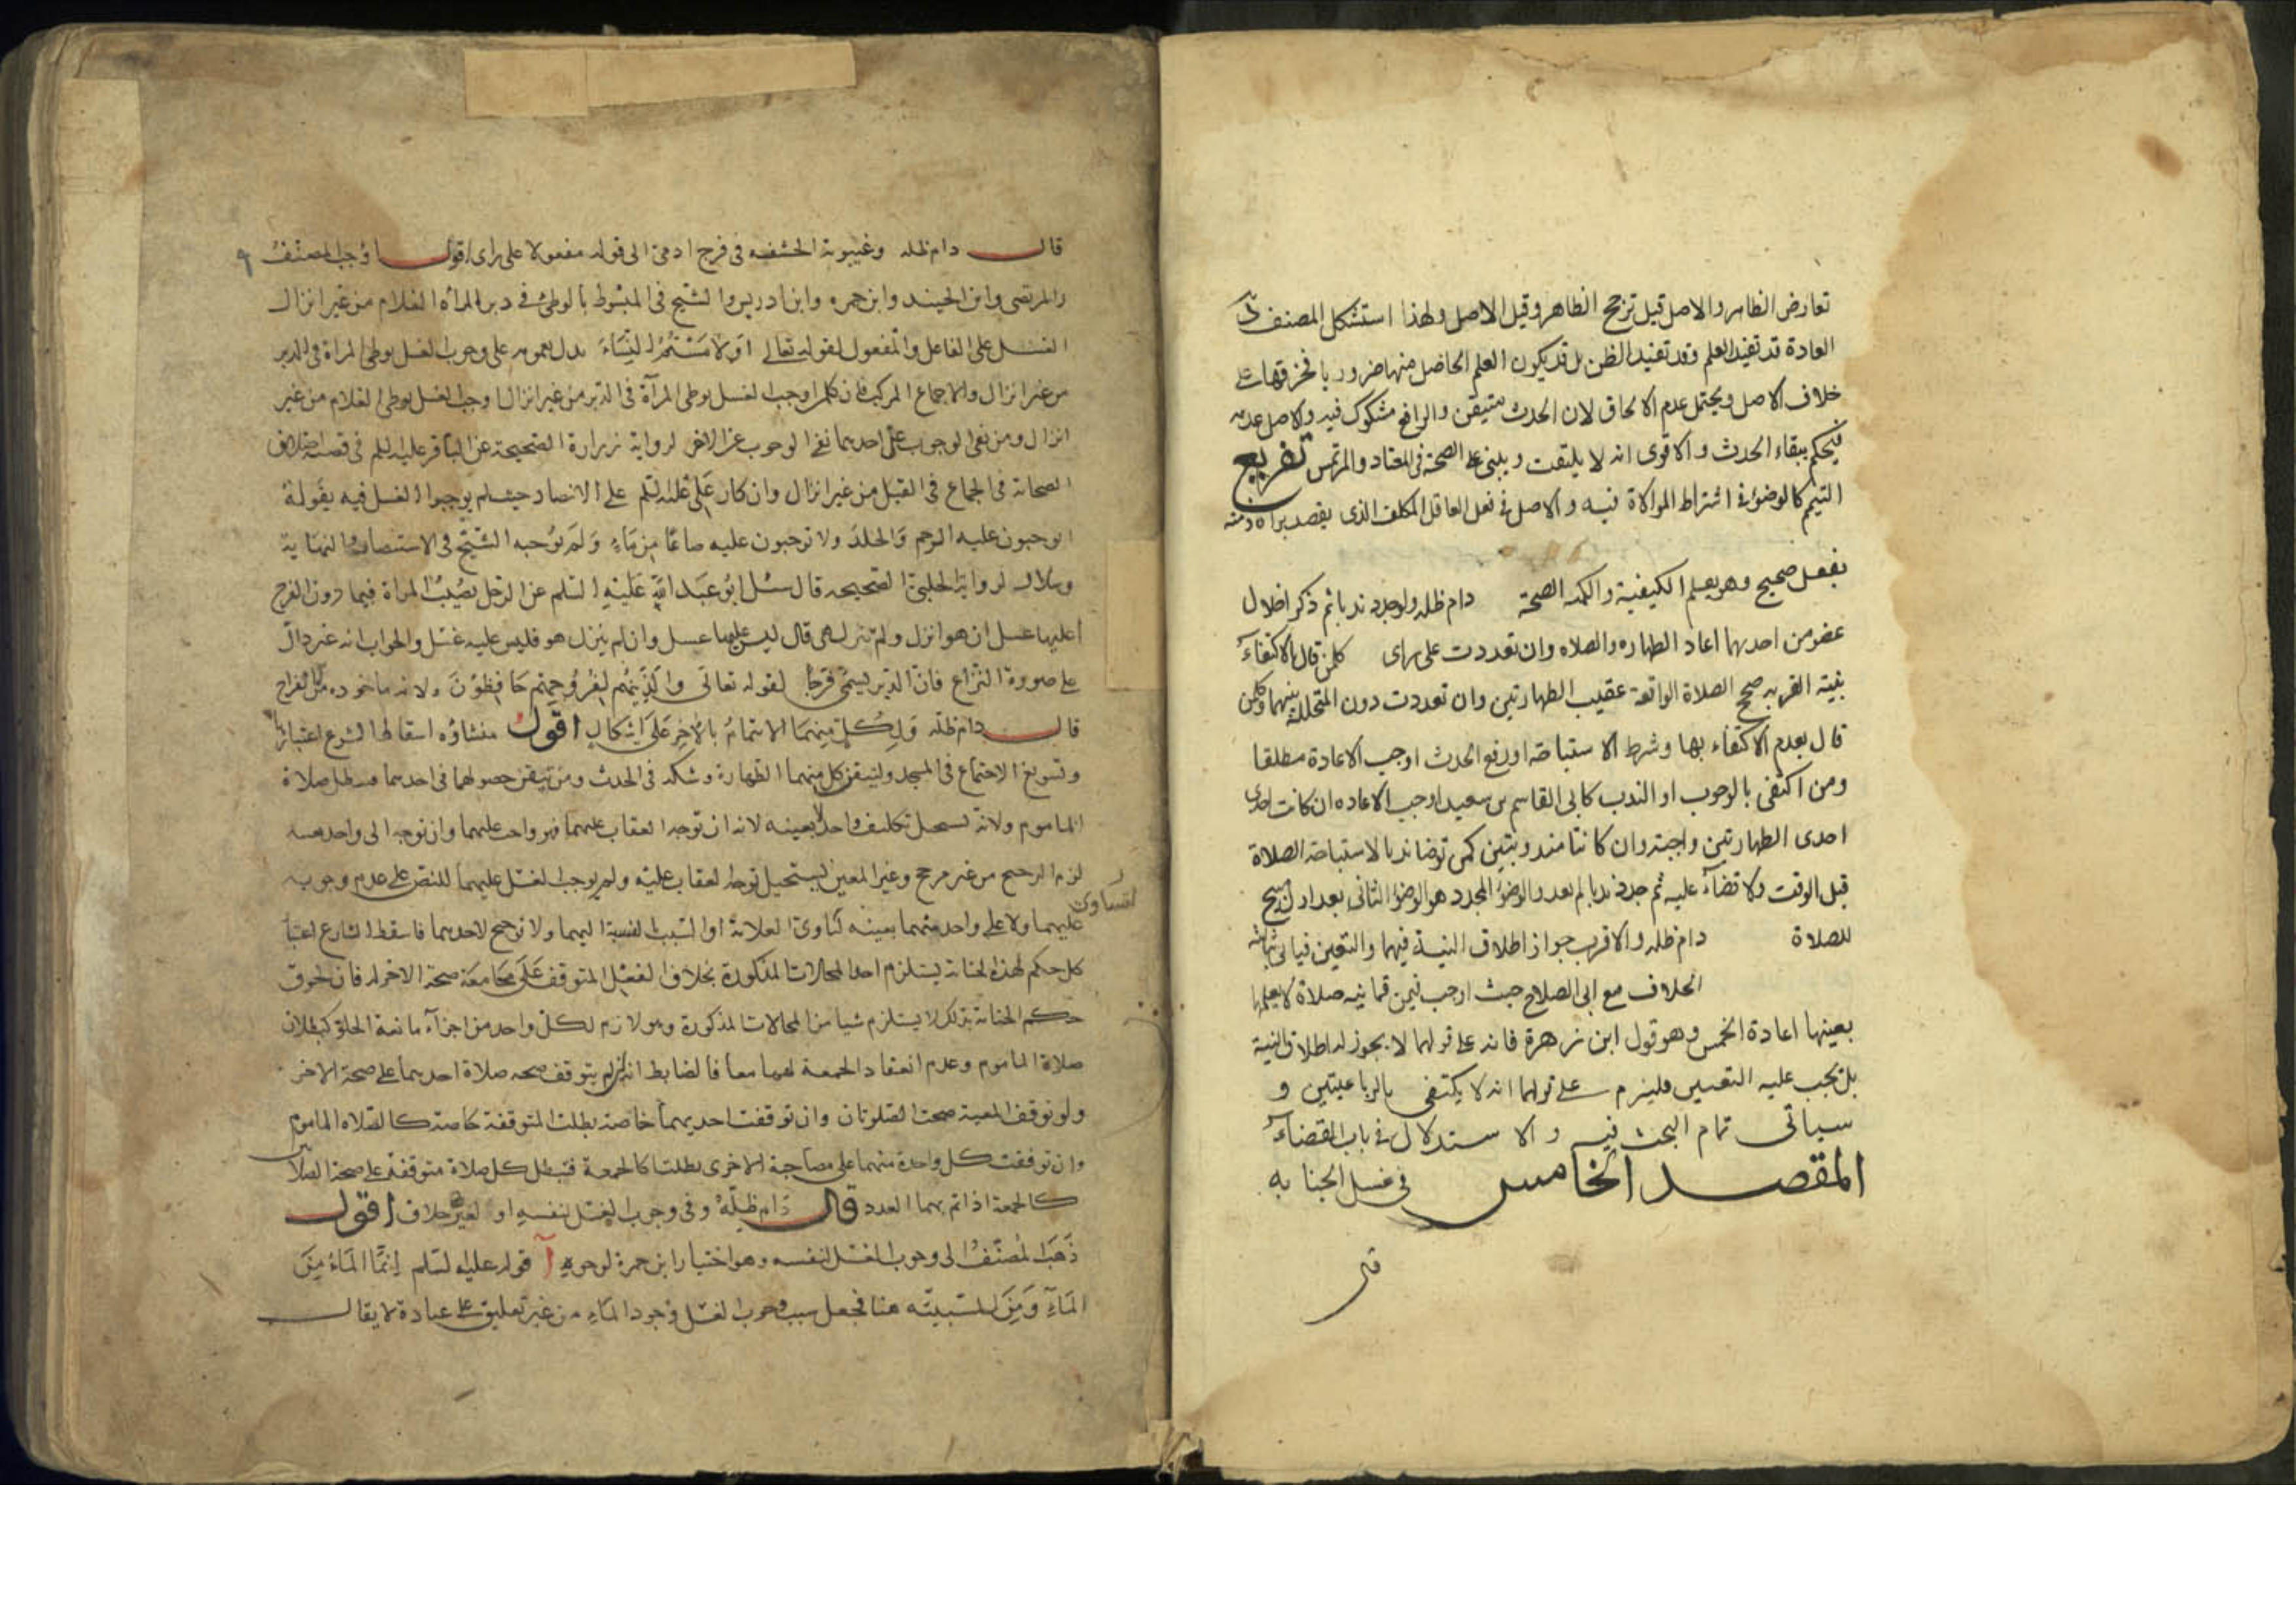 تعارض الظاهر والاصل قيل ترجح الظاهر وقيل الاصل ولهذا استشكل المصنف
العادة قد تفيد العلم وقد تفيد الظن بل قد يكون العلم الحاصل منها ضروريا
خلاف الاصل ويحتمل عدم الالحاق لان الحدث متيقن والرافع مشكوك فيه والاصل عدمه
فيحكم ببقاء الحدث والاقوى انه لا يلتفت ويبنى على الصحة في المعتاد والمرتمس تفريع
التيمم كالوضوء في اشتراط الموالاة فيه والاصل في فعل العاقل المكلف الذى يقصد براءة ذمته
بفعل صحيح وهو يعلم الكيفية والكمية الصحة دام ظله ولو جدد ندبا ثم ذكر اخلال
عضو من احديهما اعاد الطهاره والصلاه وان تعددت على راى كل من قال بالاكتفاء
بنية القربه صحح الصلاة الواقعة عقيب الطهارتين وان تعددت دون المتخللة بينهما وكل من
قال بعدم الاكتفاء بها وشرط الاستباحة او رفع الحدث اوجب الاعادة مطلقا
ومن اكتفى بالوجوب او الندب كابى القاسم بن سعيد اوجب الاعاده ان كانت احدى
احدى الطهارتين واجبة وان كانتا مندوبتين كمن توضا ندبا لاستباحة الصلاة
قبل الوقت ولا قضاء عليه ثم جدد ندبا لم يعد والوضوء المجدد هو الوضوء الثانى بعد اول مبيح
للصلاة دام ظله والاقرب جواز اطلاق النية فيهما والتعيين فياتى بثالثة
الخلاف مع ابى الصلاح حيث اوجب فيمن فاتته صلاة لا يعلمها
بعينها اعادة الخمس وهو قول ابن زهرة فانه على قولهما لا يجوز له اطلاق النية
بل يجب عليه التعيين فيلزم على قولهما انه لا يكتفى بالرباعيتين و
سياتى تمام البحث فيه والاستدلال في باب القضاء
المقصد الخامس في غسل الجنابه
قال
قال دام ظله وغيبوبة الحشفه في فرج ادمى الى قوله مفعولا على راى اقول اوجب المصنف
والمرتضى وابن الجنيد وابن حمزه وابن ادريس والشيخ في المبسوط بالوطئ في دبر المرأه الغلام من غير انزال
الغسل على الفاعل والمفعول لقوله تعالى او لامستم النساء يدل بعمومه على وجوب الغسل بوطى المراة في الدبر
من غير انزال والاجماع المركب فان كل من اوجب الغسل بوطى المرآة في الدبر من غير انزال اوجب الغسل بوطى الغلام من غير
انزال ومن نفى الوجوب عن احديهما نفى الوجوب عن الاخر لرواية زرارة الصحيحة عن الباقر عليه السلم في قصة اختلاف
الصحابة في الجماع في القبل من غير انزال وانكار على عليه السلم على الانصار حيث لم يوجبوا الغسل فيه بقوله
اتوجبون عليه الرجم والجلد ولا توجبون عليه صاعا من ماء ولم يوجبه الشيخ في الاستبصار والنهاية
وسلار لرواية الحلبى الصحيحه قال سئل ابو عبد الله عليه السلم عن الرجل يصيب المراة فيما دون الفرج
اعليها غسل ان هو انزل ولم تنزل هى قال ليس عليها غسل وان لم ينزل هو فليس عليه غسل والجواب انه غير دال
على صورة النزاع فان الدبر يسمى فرجا لقوله تعالى والذين هم لفروجهم حافظون ولانه ماخوذ من الانفراج
قال دام ظله ولكل منهما الايتمام بالاخر على اشكال اقول منشاؤه اسقاط الشرع اعتبارها
وتسويغ الاجتماع في المسجد وليتقن كل منهما الطهارة وشكه في الحدث ومن تيقن حصولهما في احديهما فتبطل صلاة
الماموم ولانه يستحيل تكليف واحد لا بعينه لانه ان توجه العقاب عليهما فهو واجب عليهما وان توجه الى واحد بعينه
لزم الترجيح من غير مرجح وغير المعين يستحيل توجه العقاب عليه ولم يوجب الغسل عليهما للنص على عدم وجوبه
لتساوى
عليهما ولا على واحد منهما بعينه لتساوى العلامة او السبب بالنسبة اليهما ولا ترجيح لاحديهما فاسقط الشارع اعتبار
كل حكم لهذه الجنابة يستلزم احد المحالات المذكورة بخلاف الفعل المتوقف على مجامعة صحة الاخر له فان لحوق
حكم الجنابة بذلك لا يستلزم شيا من المحالات المذكورة وهو لازم لكل واحد من اجزاء مانعة الخلو كبطلان
صلاة الماموم وعدم انعقاد الجمعة لهما معا فالضابط انه ان لم يتوقف صحه صلاة احديهما على صحة الاخر
ولو توقف المعية صحت الصلوتان وان توقفت احديهما خاصة بطلت المتوقفة خاصة كالصلاه الماموم
وان توقفت كل واحدة منهما على مصاحبة الاخرى بطلتا كالجمعة فتبطل كل صلاة متوقفة على صحة الصلاتين
كالجمعة اذا تم بهما العدد قال دام ظله وفى وجوب الغسل لنفسه او لغيره خلاف اقول
ذهب المصنف الى وجوب الغسل لنفسه وهو اختيار ابن حمزة لوجوه آ قوله عليه السلم انما الماء من
الماء ومن للسببية هنا فجعل سبب وجوب الغسل وجود الماء من غير تعليق على عبادة لا يقال